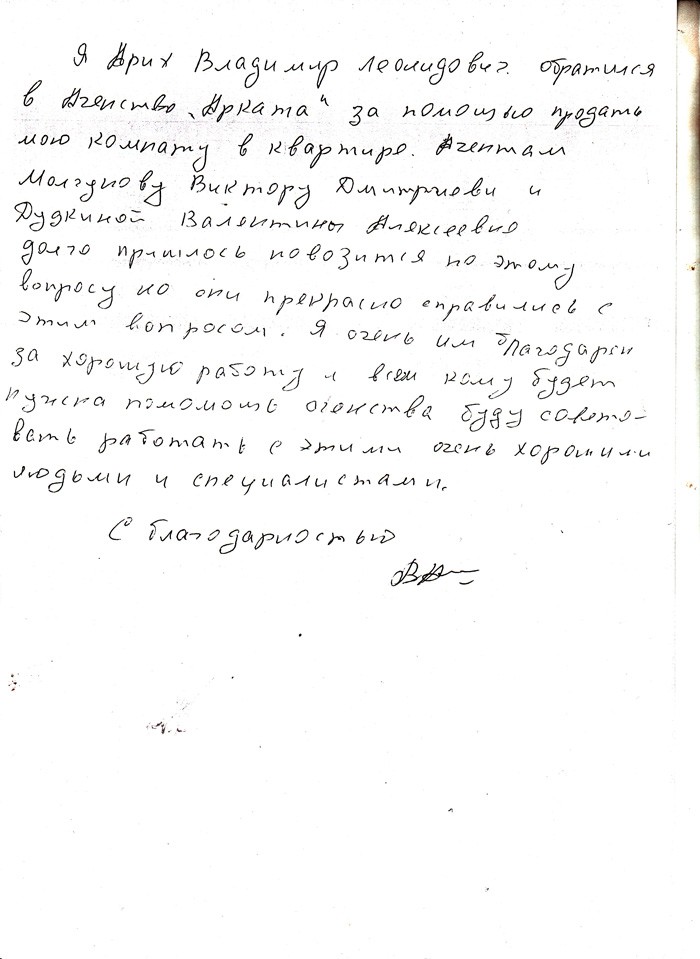 Я Арих Владимир Леонидович. обратился
в Агенство „Арката“ за помощью продать
мою комнату в квартире. Агентам
Молгунову Виктору Дмитриеви и
Дудкиной Валентины Алексеевне
долго пришлось повозится по этому
вопросу но они прекрасно справились с
этим вопросом. Я очень им благодарен
за хорошую работу и всем кому будет
нужна помомошь агенства буду совето-
вать работать с этими очень хорошими
людьми и специалистами.
С благодарностью